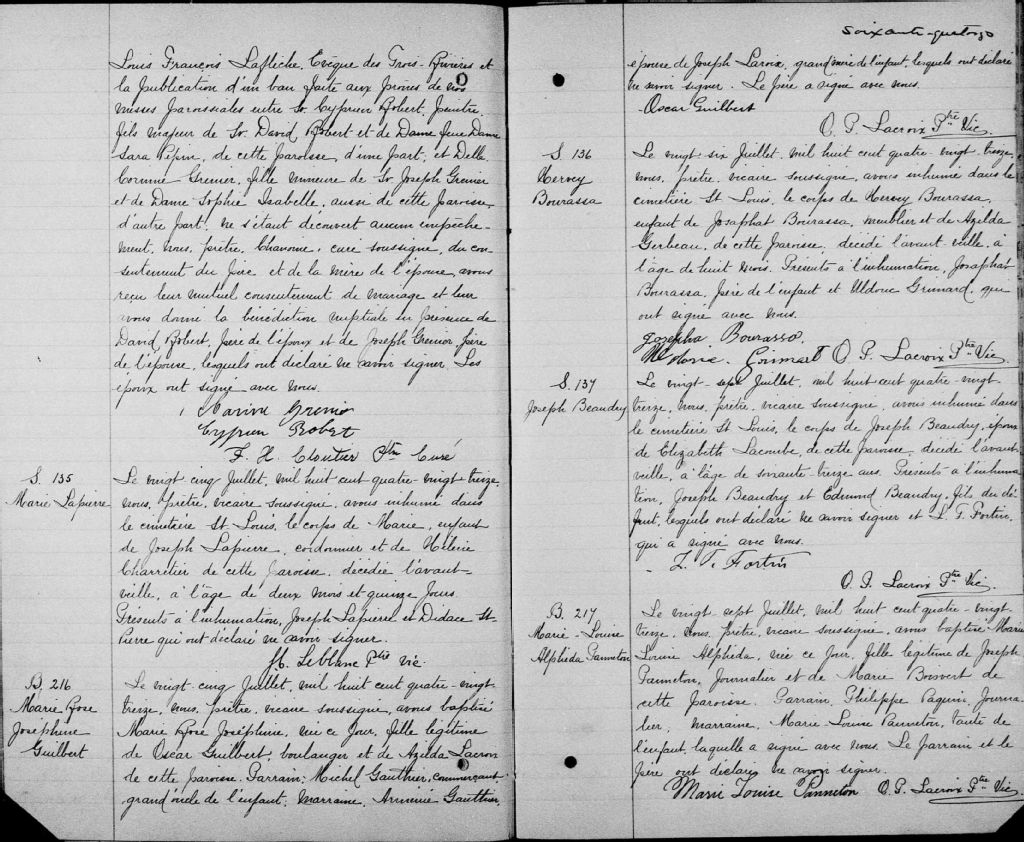 Louis François Laflèche, Evêque des Trois-Rivières et
la publication d'un ban faite aux prônes de nos
messes paroissiales entre Sr. Cyprien Robert, peintre,
fils majeur de Sr. David Robert et de Dame feue Dame
Sara Pépin, de cette paroisse, d'une part; et Delle
Corinne Grenier, fille mineure de Sr. Joseph Grenier
et de Dame Sophie Isabelle, aussi de cette paroisse,
d'autre part; ne s'étant découvert aucun empêche-
ment, nous, prêtre, Chanoine, curé soussigné, du con-
sentement du père et de la mère de l'épouse, avons
reçu leur mutuel consentement de mariage et leur
avons donné la bénédiction nuptiale en présence de
David Robert, père de l'époux et de Joseph Grenier, père
de l'épouse, lesquels ont déclaré ne savoir signer. Les
époux ont signé avec nous.
Grenier
Cyprien Robert
F. H. Cloutier Ptre Curé
S. 135
Marie Lapierre
Le vingt cinq Juillet, mil huit cent quatre-vingt-treize,
nous, prêtre, vicaire soussigné, avons inhumé dans
le cimetière St. Louis, le corps de Marie, enfant
de Joseph Lapierre, cordonnier et de Hélène
Charretier de cette paroisse, décédée l'avant-
veille, à l'âge de deux mois et quinze jours
Présents à l'inhumation, Joseph Lapierre et Didace St-
Pierre qui ont déclaré ne savoir signer.
Leblanc Ptre vic.
B. 216
Marie Rose
Joséphine
Guilbert
Le vingt-cinq Juillet, mil huit cent quatre-vingt-
treize, nous, prêtre, vicaire soussigné, avons baptisé
Marie Rose Joséphine, née ce jour, fille légitime
de Oscar Guilbert, boulanger et de Azilda Lacroix
de cette paroisse. Parrain, Michel Gauthier, commerçant
grand'oncle de l'enfant; marraine, Arminie Gauthier,
soixante-quatorze
épouse de Joseph Laroix, grand'mère de l'enfant, lesquels ont déclaré
ne savoir signer. Le père a signé avec nous.
Oscar Guilbert
O. P. Lacroix Ptre Vic.
S. 136
Hervey
Bourassa
Le vingt-six Juillet, mil huit cent quatre-vingt-treize,
nous, prêtre, vicaire soussigné, avons inhumé dans le
cimetière St Louis, le corps de Hervey Bourassa,
enfant de Josaphat Bourassa, meublier et de Azilda
Gerbeau, de cette paroisse, décédé l'avant-veille, à
l'âge de huit mois. Présents à l'inhumation, Josaphat
Bourassa, père de l'enfant et Uldoric Grimard, qui
ont signé avec nous.
Josepha Bourassa.
O. P. Lacroix Ptre Vic.
S. 137
Joseph Beaudry
Le vingt-sept Juillet, mil huit cent quatre-vingt-
treize, nous, prêtre, vicaire soussigné, avons inhumé dans
le cimetière St Louis, le corps de Joseph Beaudry, époux
de Elizabeth Lacombe, de cette paroisse, décédé l'avant-
veille, à l'âge de soixante-treize ans. Présents à l'inhuma-
tion, Joseph Beaudry et Edmund Beaudry, fils du dé-
funt, lesquels ont déclaré ne savoir signer et L. T. Fortin,
qui a signé avec nous.
L. T. Fortin
O. P. Lacroix Ptre Vic.
B. 217
Marie-Louise
Alphéda Panneton
Le vingt-sept Juillet, mil huit cent quatre-vingt-
treize, nous, prêtre, vicaire soussigné, avons baptisé Marie
Louise Alphéda, née ce jour, fille légitime de Joseph
Panneton, journalier et de Marie Boisvert de
cette paroisse. Parrain, Philippe Paquin, journa-
lier, marraine, Marie Louise Panneton, tante de
l'enfant, laquelle a signé avec nous. Le parrain et le
père ont déclaré ne savoir signer.
Marie Louise Panneton O. P. Lacroix Ptre Vic.